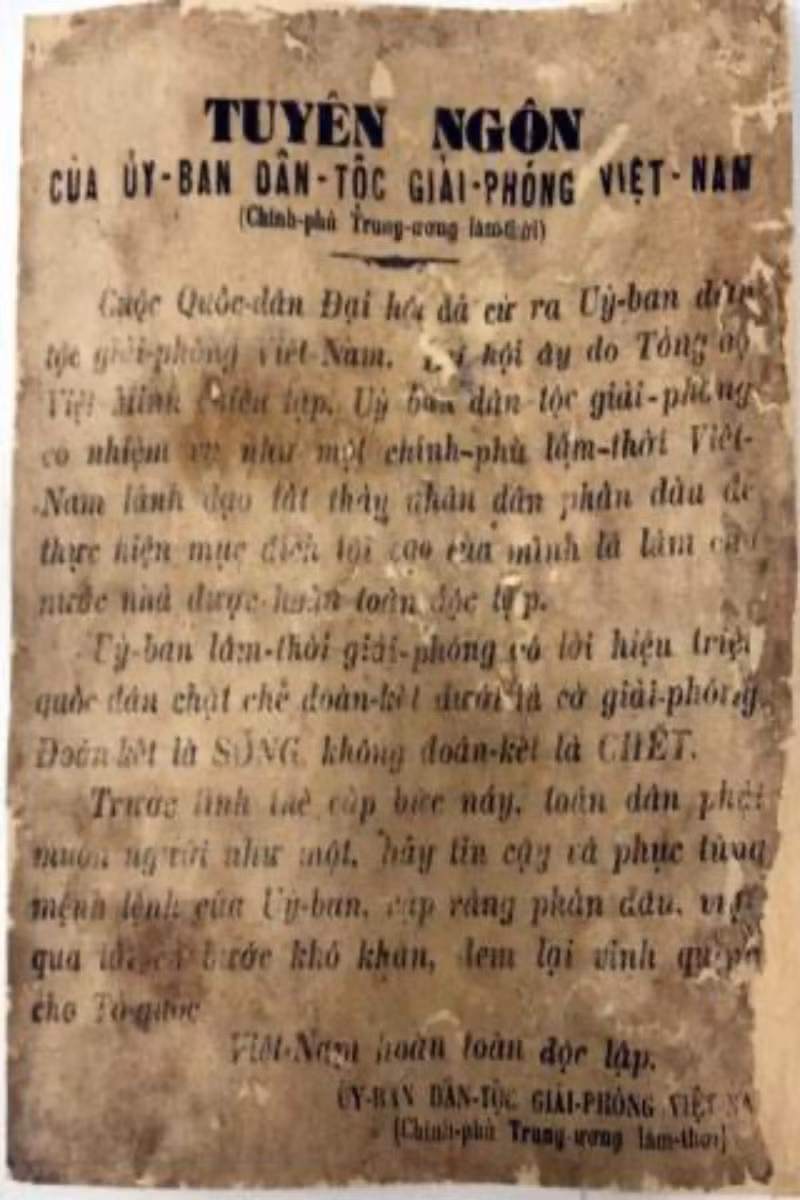 TUYÊN NGÔN
CỦA ỦY-BAN DÂN-TỘC GIẢI-PHÓNG VIỆT-NAM
(Chính-phủ Trung-ương lâm-thời)
Cuộc Quôc-dân Đại hội đã cử ra Uỷ-ban dân
tộc giải-phóng Việt-Nam. hội ây do Tổng bộ
Việt Minh triệu tập. Uỷ ban dân tộc giải-phóng
có nhiệm vụ như một chính-phủ lâm-thời Việt-
Nam lãnh đạo tât thảy nhân dân phân đâu để
thực hiện mục đích tôi cao của mình là làm cho
nước nhà được hoàn toàn độc lập.
Uỷ-ban lâm-thời giải-phóng có lời hiệu triệu
quôc dân chặt chẽ đoàn-kêt dưới lá cờ giải-phóng.
Đoàn-kêt là SÔNG, không đoàn-kêt là CHÊT.
Trước tình thê câp bức này, toàn dân phải
muôn người như một, hãy tin cậy và phục tùng
mệnh lệnh của Uỷ-ban, câp rảng phân đâu, vượt
qua bước khó khăn, đem lại vinh quang
cho Tổ-quôc
Việt-Nam hoàn toàn độc lập.
ỦY-BAN DÂN-TỘC GIẢI-PHÓNG VIỆT-NAM
(Chính-phủ Trung-ương lâm-thời)